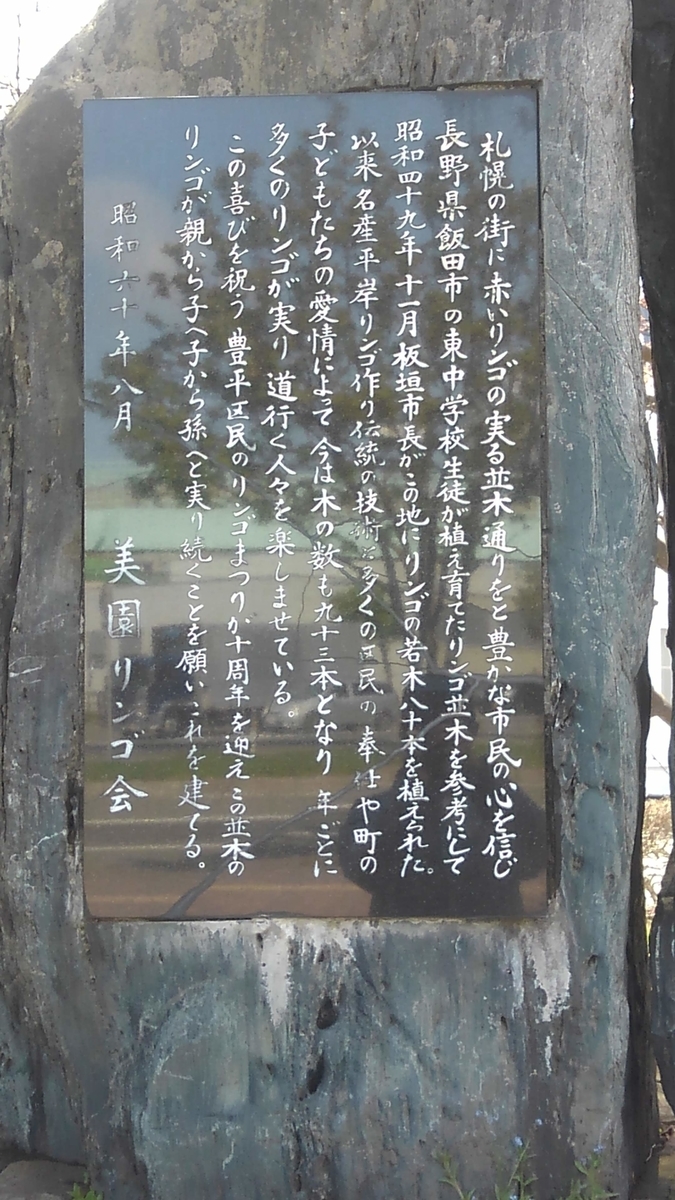 札幌の街に赤いリンゴの実る並木通りをと豊かな市民の心を信じ
長野県飯田市の東中学校生徒が植え育てたリンゴ並木を参考にして
昭和四十九年十一月板垣市長がこの地にリンゴの若木八十本を植えられた。
以来名産平岸リンゴ作り伝統の技術と多くの区民の奉仕や町の
子どもたちの愛情によって今は木の数も九十三本となり年ごとに
多くのリンゴが実り道行く人々を楽しませている。
この喜びを祝う豊平区民のリンゴまつりが十周年を迎えこの並木の
リンゴが親から子へ子から孫へと実り続くことを願いこれを建てる。
昭和六十年八月
美園リンゴ会